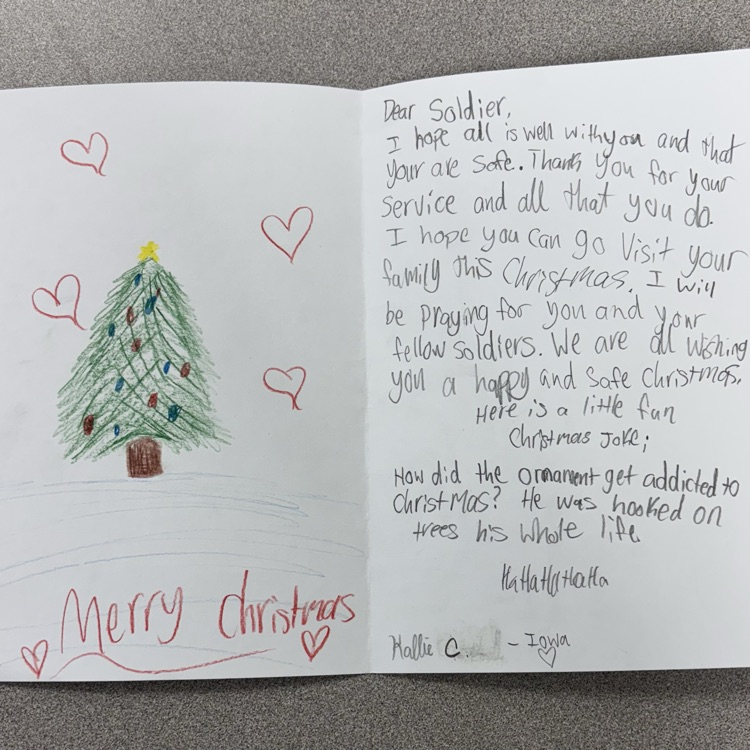 Merry Christmas
Dear Soldier,
I hope all is well with you and that
your are safe. Thank you for your
service and all that you do.
I hope you can go visit your
family this Christmas. I will
be praying for you and your
fellow soldiers. We are all wishing
you a happy and safe Christmas.
Here is a little fun
Christmas Joke;
How did the ornament get addicted to
Christmas? He was hooked on
trees his whole life
HaHaHaHaHa
Hallie C. - Iowa